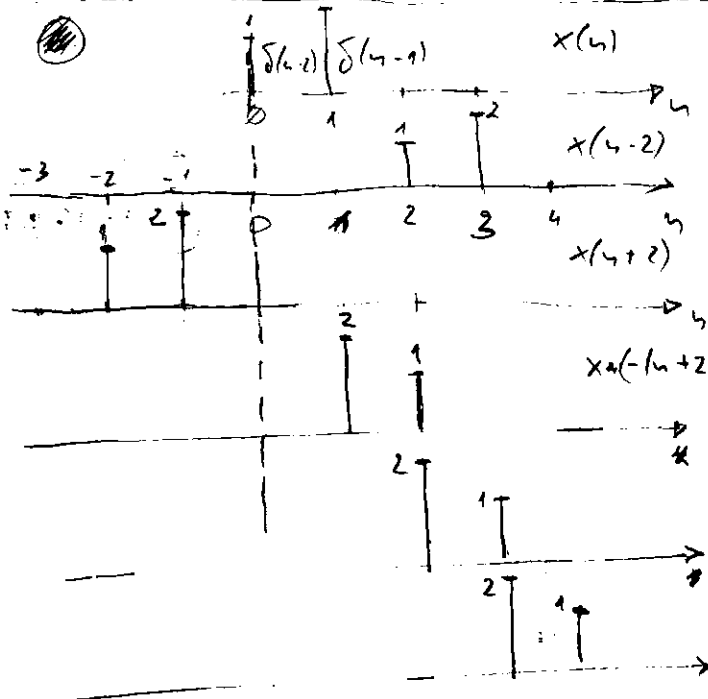 1
δ(n-2) δ(n-1) x(n)
0 1 n
1 2 x(n-2)
-3 -2 -1 0 1 2 3 4 n
1 2 x(n+2)
n
2 1 x(-n+2
2 1
2 1